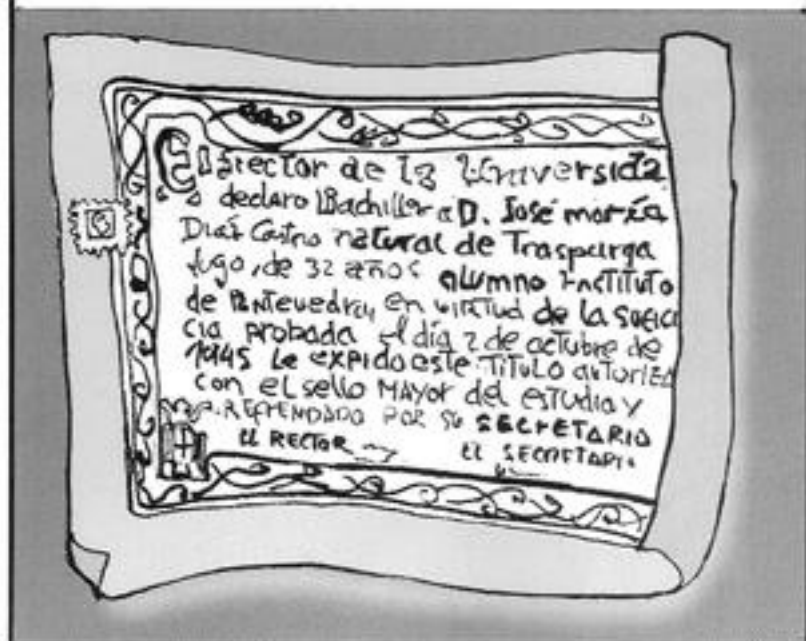 El Director de la Universida
declaro Bachiller a D. José maría
Diaz Castro natural de Trasparga
lugo, de 32 años alumno Instituto
de Pontevedra, en virtud de la sufici
cia probada el día 2 de octubre de
1945 Le expido este Título autoriza
con el sello MAYOR del estudio y
REFRENDADO POR SU SECRETARIO
EL RECTOR EL SECRETARIO